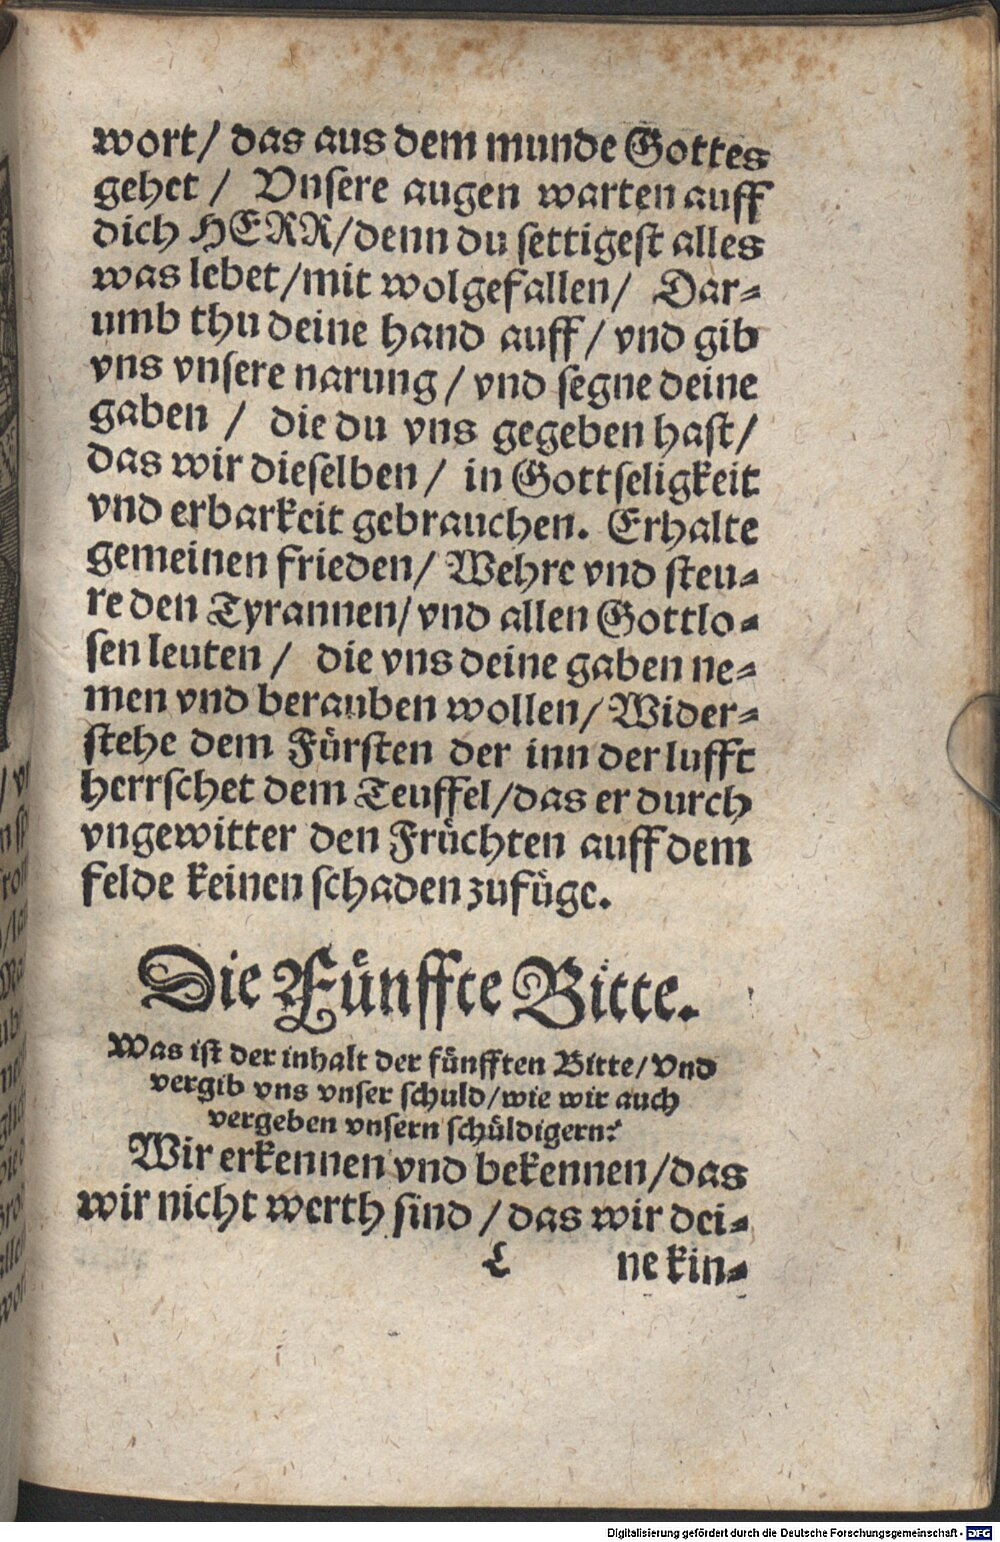 wort/ das aus dem munde Gottes
gehet / Vnsere augen warten auff
dich HERR/denn du settigest alles
was lebet/mit wolgefallen/ Dar⸗
umb thu deine hand auff/ vnd gib
vns vnsere narung / vnd segne deine
gaben / die du vns gegeben hast/
das wir dieselben / in Gottseligkeit
vnd erbarkeit gebrauchen. Erhalte
gemeinen frieden/ Wehre vnd steu⸗
re den Tyrannen/vnd allen Gottlo⸗
sen leuten / die vns deine gaben ne⸗
men vnd berauben wollen/ Wider⸗
stehe dem Fürsten der inn der lufft
herrschet dem Teuffel/das er durch
vngewitter den Früchten auff dem
felde keinen schaden zufüge.
Die Fünffte Bitte.
Was ist der inhalt der fünfften Bitte/ Vnd
vergib vns vnser schuld/wie wir auch
vergeben vnsern schüldigern?
Wir erkennen vnd bekennen/das
wir nicht werth sind / das wir dei⸗
L ne kin⸗
Digitalisierung gefördert durch die Deutsche Forschungsgemeinschaft - DFG